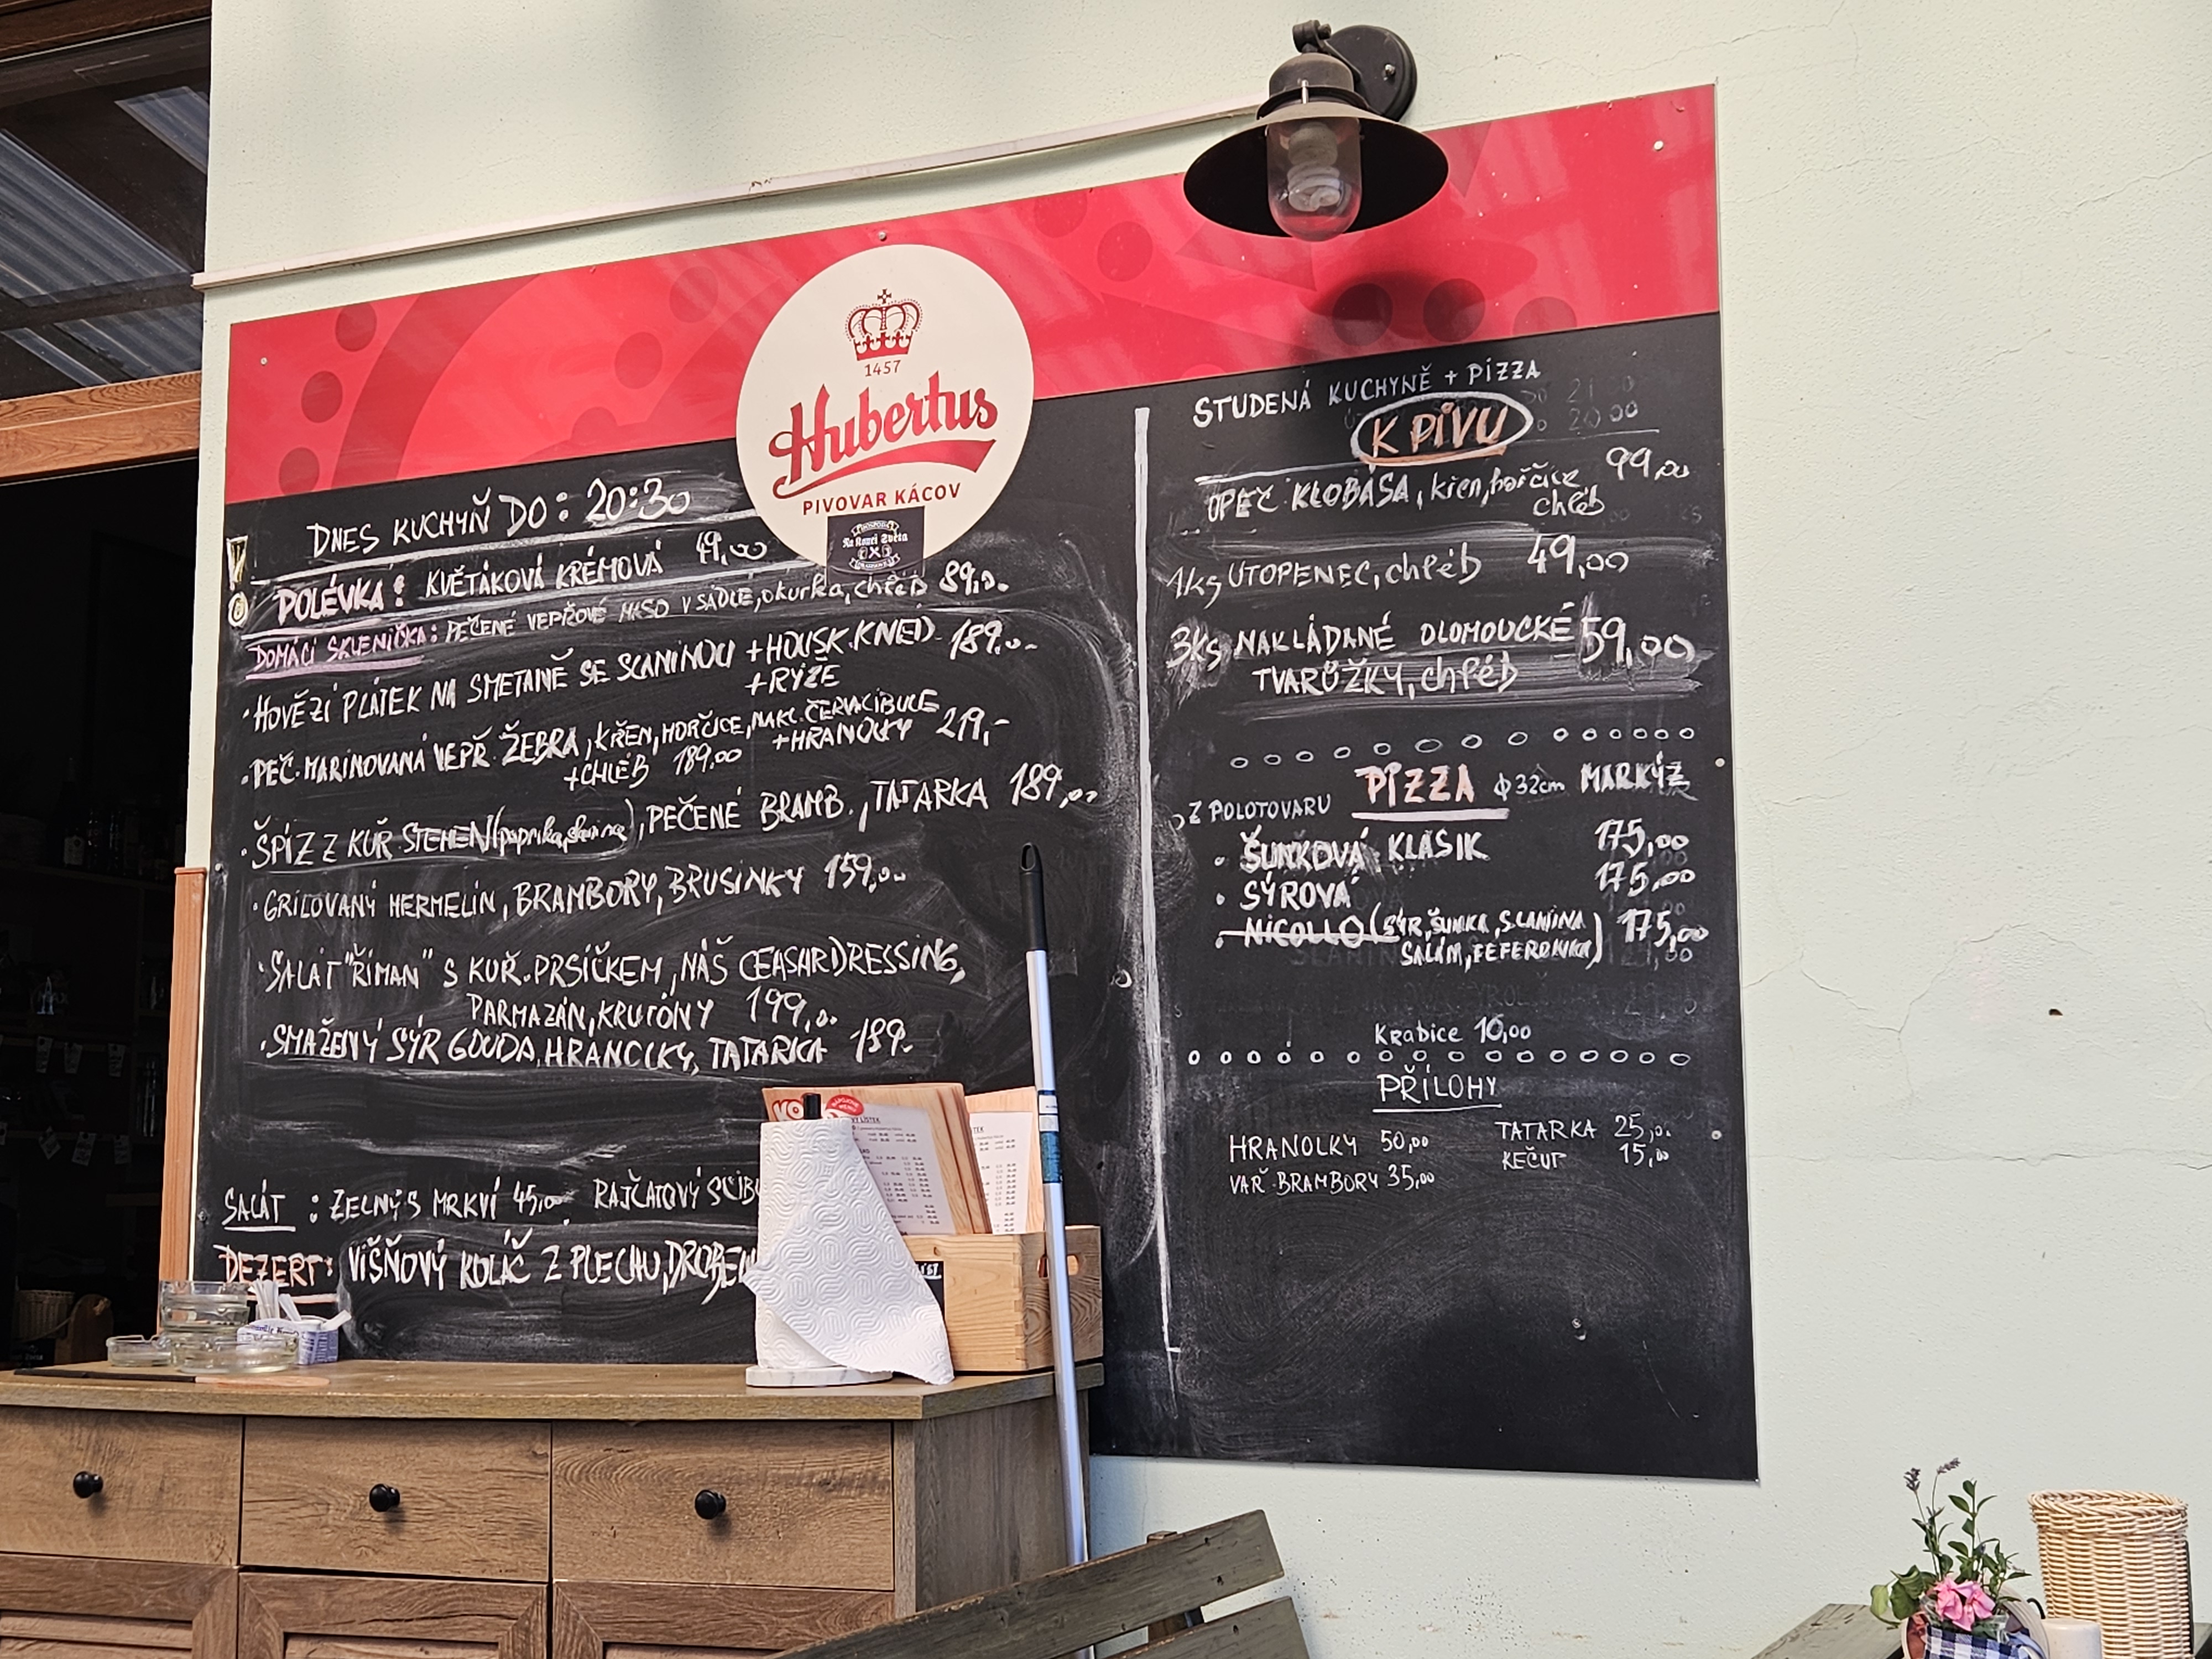 1457
Hubertus
PIVOVAR KÁCOV
HOSPODA
Na Konci Světa
DNES KUCHYŇ DO: 20:30
POLÉVKA: KVĚTÁKOVÁ KRÉMOVÁ 49,00
DOMÁCÍ SKLENIČKA: PEČENÉ VEPŘOVÉ MASO V SÁDLE, okurka, chléb 89,00
• HOVĚZÍ PLÁTEK NA SMETANĚ SE SLANINOU + HOUSK. KNEDL. 189,00
+ RÝŽE
• PEČ. MARINOVANÁ VEPŘ. ŽEBRA, KŘEN, HOŘČICE, NAKL. ČERVA CIBULE
+ CHLÉB 189,00 + HRANOLKY 219,-
• ŠPÍZ Z KUŘ STEHEN (paprika, slanina), PEČENÉ BRAMB., TATARKA 189,00
• GRILOVANÝ HERMELÍN, BRAMBORY, BRUSINKY 159,00
• SALÁT "ŘÍMAN" S KUŘ. PRSÍČKEM, NÁŠ CEASAR DRESSING,
PARMAZÁN, KRUTÓNY 199,00
• SMAŽENÝ SÝR GOUDA, HRANOLKY, TATARKA 189,-
SALÁT : ZELNÝ S MRKVÍ 45,00 RAJČATOVÝ S CIBU
DEZERT: VIŠŇOVÝ KOLÁČ Z PLECHU, DROBEN
STUDENÁ KUCHYNĚ + PIZZA
K PIVU
OPEČ. KLOBÁSA, křen, hořčice 99,00
chléb
1ks UTOPENEC, chléb 49,00
3ks NAKLÁDANÉ OLOMOUCKÉ 59,00
TVARŮŽKY, chléb
Z POLOTOVARU PIZZA Φ 32cm MARKÝZ
• ŠUNKOVÁ KLASIK 175,00
• SÝROVÁ 175,00
• NICOLLO (SÝR, ŠUNKA, SLANINA 175,00
SALÁM, FEFERONKA)
Krabice 10,00
PŘÍLOHY
HRANOLKY 50,00 TATARKA 25,00
VAŘ. BRAMBORY 35,00 KEČUP 15,00